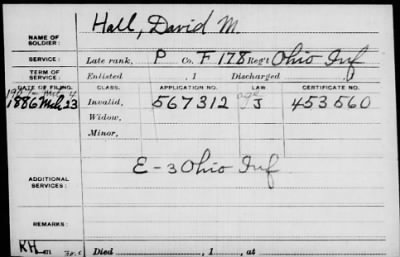 Hall, David M.
NAME OF SOLDIER:
SERVICE: Late rank, P Co. F 178 Reg't Ohio Inf
TERM OF SERVICE: Enlisted , 1 Discharged , 1
DATE OF FILING. CLASS. APPLICATION NO. LAW. CERTIFICATE NO.
1886 Mch 23 Invalid, 567312 J 453560
Widow,
Minor,
E - 3 Ohio Inf
ADDITIONAL SERVICES:
REMARKS:
KH
Died , 1 , at